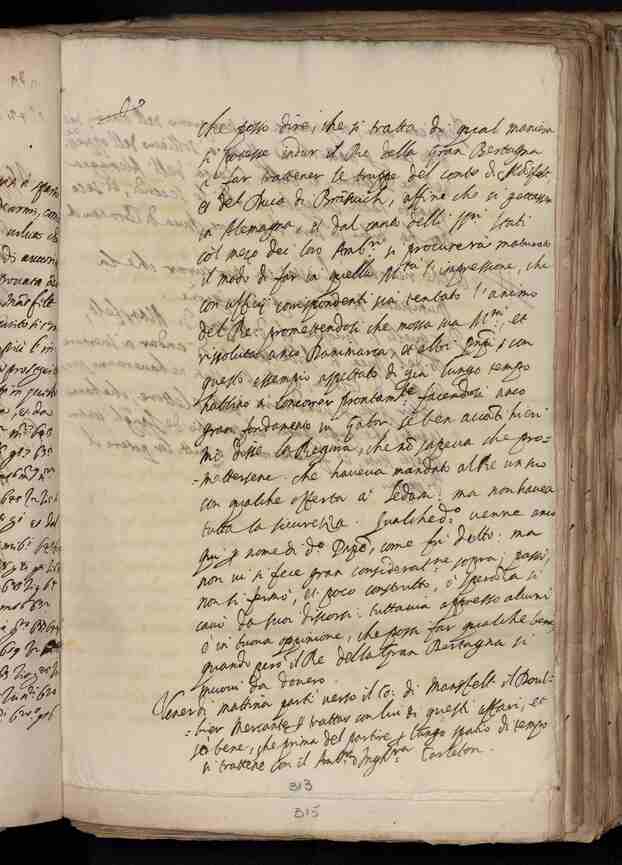 che posso dire, che si tratta di qual maniera
si potesse indur il Re della Gran Bertagna
à far trattener le truppe del conte di Mansfelt
et del Duca di Bransuich, affine che si gettassero
in Alemagna, et dal canto delli ssri Stati
col mezo dei loro Ambri si procurerà
il modo di far in quella Mta l'impressione, che
con ufficij corrispondenti sia tentato l'animo
del Re: promettendosi che mossa sua Mtà, et
risoluta anco Danimarca, et altri con
questo essempio aspettato di già lungo tempo
habbino à concorrer prontamte facendosi anco
gran fondamento in Gabor se ben hieri
mi disse la Regina, che nō sapeva che pro=
=mettersene. che haveva mandato al Re un suo
con qualche offerta à Sedam: ma non haveva
tutta la sicurezza. Qualchedo venne anco
qui nome di do come fù detto: ma
non vi si fece gran consideratione sopra; passò,
non si fermò, et poco construtto, ò speranza si
cavò da suoi discorsi. tuttavia appresso alcuni
è in buona oppinione, che possi far qualche bene
quando però il Re della Gran Bertagna si
muovi da dovero.
Venerdì mattina partì verso il Co: di Mansfelt il Boul=
=lier Mercante trattar con lui di questi affari, et
sò bene, che prima del partire lungo spatio di tempo
si trattene con il Ambr d'Inghra Carleton.
313
315